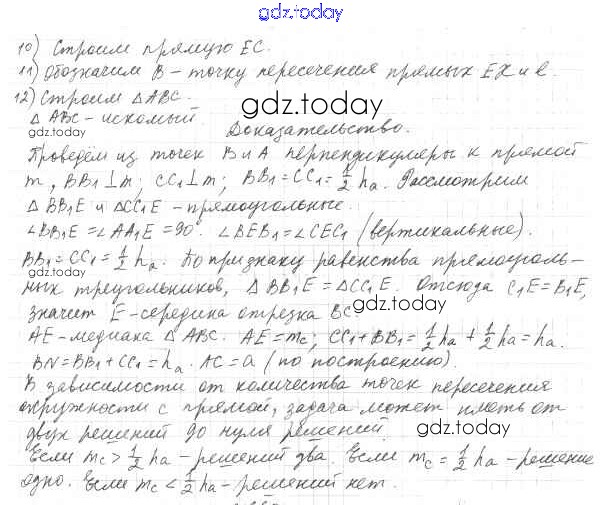 gdz.today
10) Строим прямую EC.
11) Обозначим B – точку пересечения прямых EX и l.
12) Строим △ABC.
gdz.today
△ABC – искомый.
gdz.today
Доказательство.
Проведём из точек B и A перпендикуляры к прямой
m, BB₁⊥m; CC₁⊥m; BB₁=CC₁=½hₐ. Рассмотрим
△BB₁E и △CC₁E – прямоугольные.
∠BB₁E=∠AA₁E=90°. ∠BEB₁=∠CEC₁ (вертикальные).
BB₁=CC₁=½hₐ. По признаку равенства прямоуголь-
gdz.today
ных треугольников, △BB₁E=△CC₁E. Отсюда C₁E=B₁E,
значит E – середина отрезка BC.
gdz.today
AE – медиана △ABC. AE=mc; CC₁+BB₁=½hₐ+½hₐ=hₐ.
BN=BB₁+CC₁=hₐ. AC=a (по построению).
В зависимости от количества точек пересечения
окружности с прямой, задача может иметь от
двух решений до нуля решений.
gdz.today
Если mc>½hₐ – решений два. Если mc=½hₐ – решение
одно. Если mc<½hₐ – решений нет.
gdz.today